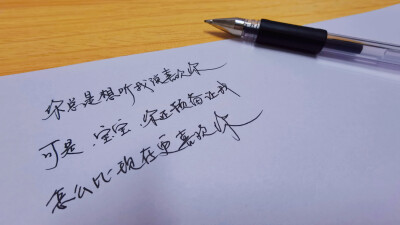 你总是想听我说喜欢你
可是 宝宝 你还预备让我
怎么比现在更喜欢你